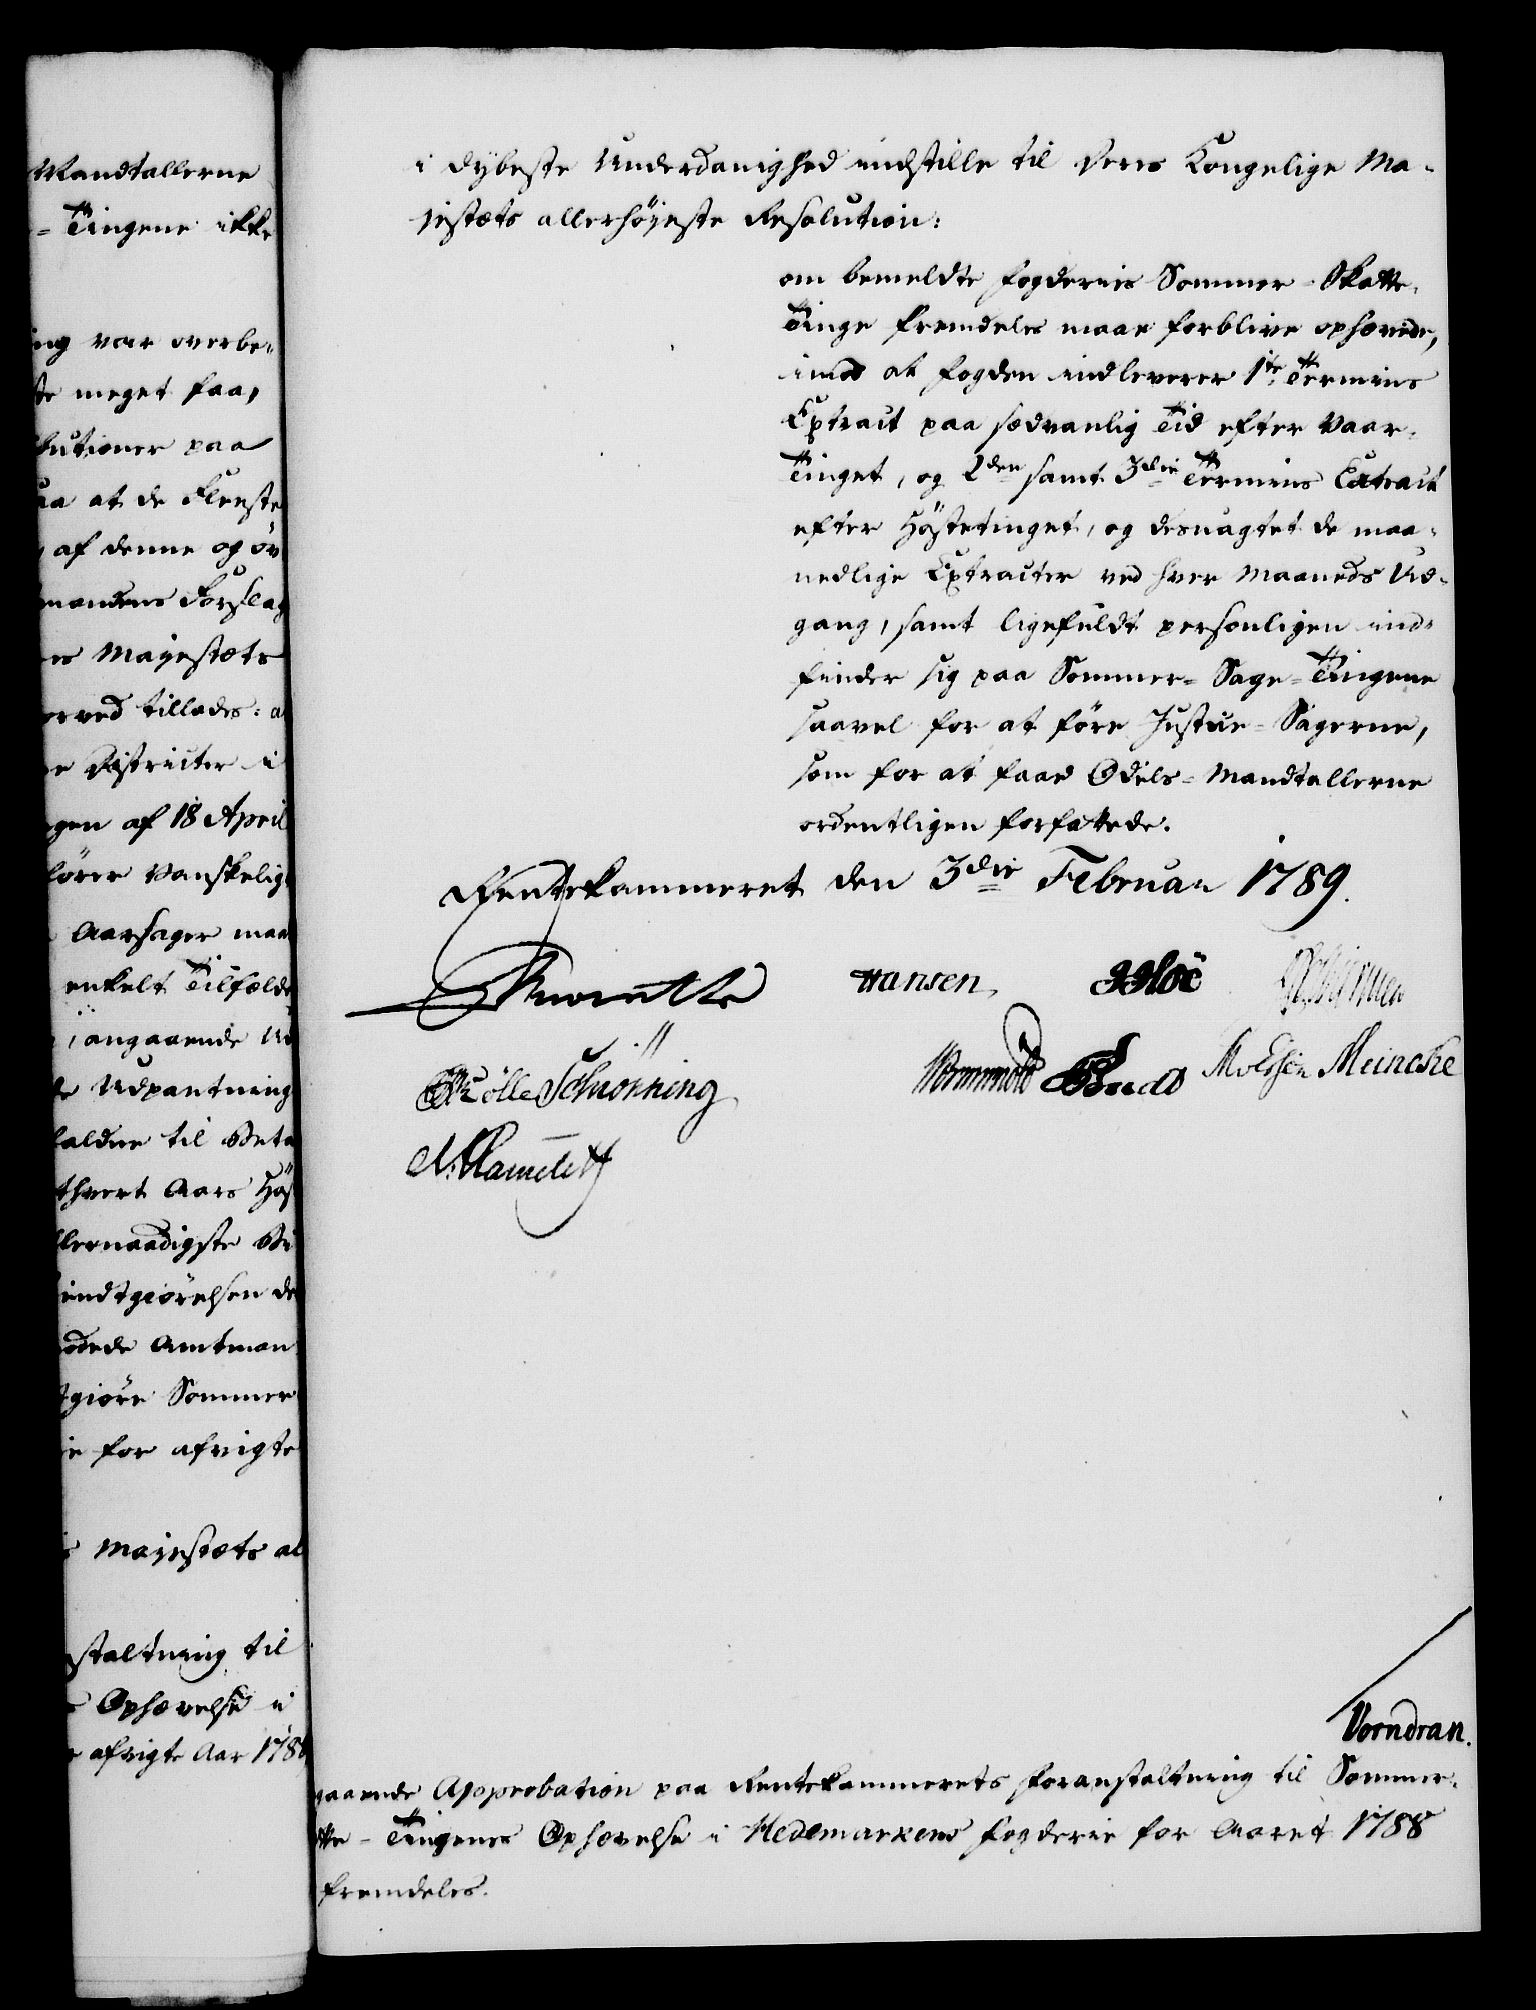 Mandtallerne
- Tingene ikke
ing var overbe-
meget faa,
butioner paa
at de fleeste
af denne og øv
mandens Forslag
Majestæts
erved tillades: a
Districter i
gen af 18 April
fører Vanskelig
Aarsager maa
enkelt Tilfælde
, angaaende Ud
Udpantning
faldne til Beta
thvert Aars Høs
llernaadigste Be
iendtgiörelsen de
Amtman
giöre Sommer
for afvigte
Majestæts al
staltning til
Ophævelse i
afvigte Aar 178
i dybeste Underdanighed indstille til Deres Kongelige Ma-
jestæts allerhöjeste Resolution:
om bemeldte Fogderies Sommer-Skatte-
Tinge fremdeles maae forblive ophævede,
imod at Fogden indleverer 1te Termins
Extract paa sædvanlig Tid efter Vaar-
Tinget, og 2den samt 3die Termins Extract
efter Höstetinget, og desuagtet de maa-
nedlige Extracter ved hver Maaneds Ud-
gang, samt ligefuldt personligen ind-
finder sig paa Sommer-Sage-Tingene
saavel for at före Justice-Sagerne,
som for at faae Odels-Mandtallerne
ordentligen forfattede.
Rentekammeret den 3die Februar 1789.
Hansen
Schiönning
Meincke
Vorndran.
gaaende Approbation paa Rentekammerets Foranstaltning til Sommer-
tte-Tingenes Ophævelse i Hedemarkens Fogderie for Aaret 1788
fremdeles.